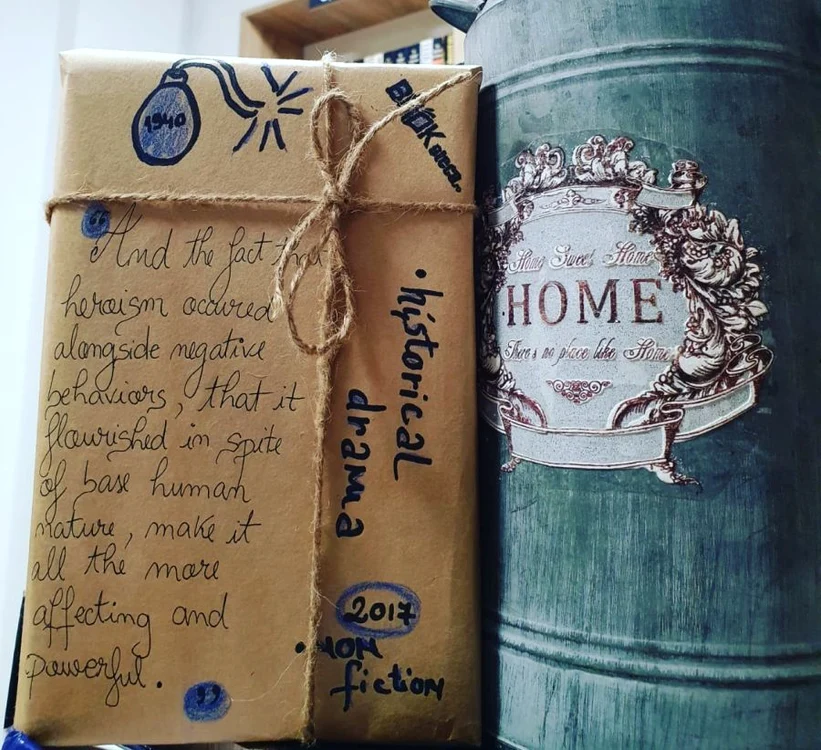 1940
BOOK
"And the fact that
heroism occured
alongside negative
behaviors, that it
flourished in spite
of base human
nature, make it
all the more
affecting and
powerful."
• historical
drama
2017
• NON
fiction
Home Sweet Home
HOME
There's no place like Home